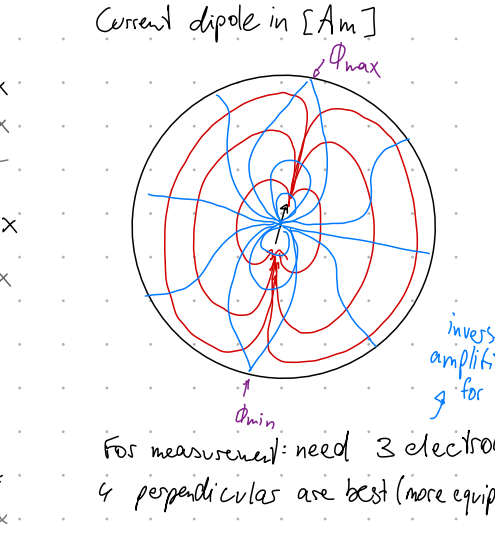 Current dipole in [Am]
Φmax
invers
amplifi
for
Φmin
For measurement: need 3 electro
↳ perpendicular are best (more equip